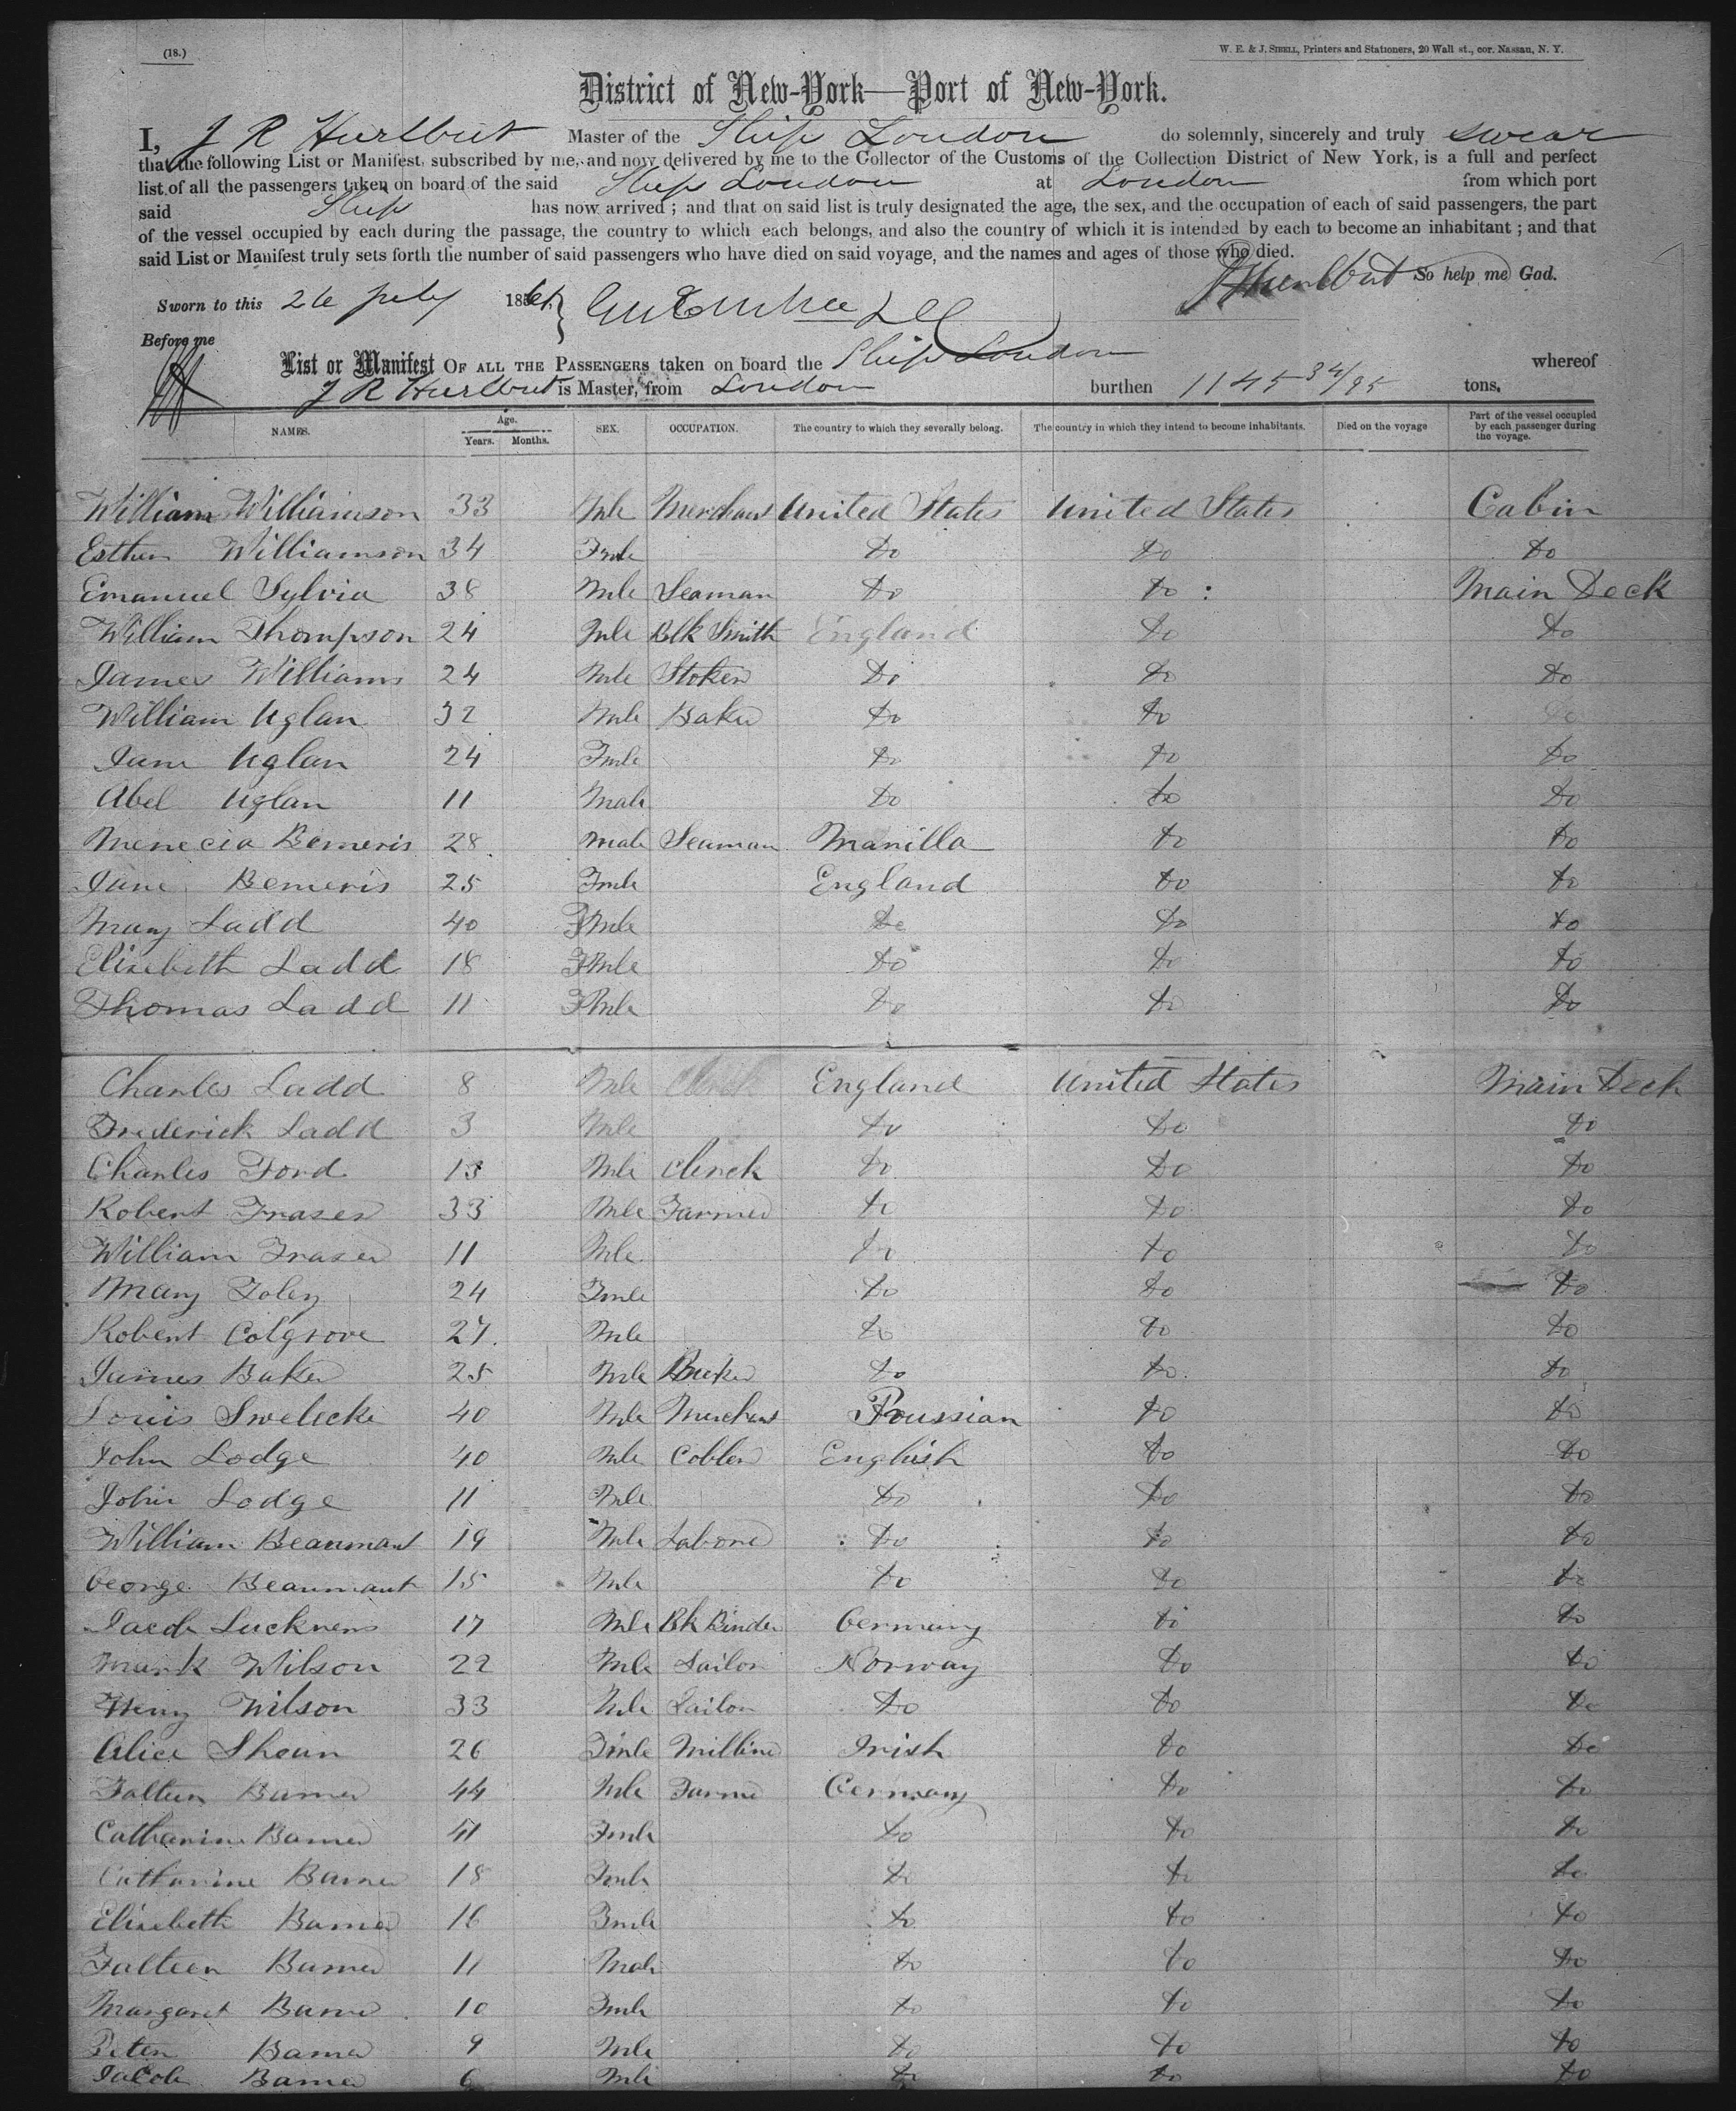 (18.)
W. E. & J. SIBELL, Printers and Stationers, 20 Wall st., cor. Nassau, N. Y.
District of New-York—Port of New-York.
I, J R Hurlbut Master of the Ship London do solemnly, sincerely and truly swear
that the following List or Manifest, subscribed by me, and now delivered by me to the Collector of the Customs of the Collection District of New York, is a full and perfect
list of all the passengers taken on board of the said Ship London at London from which port
said Ship has now arrived; and that on said list is truly designated the age, the sex, and the occupation of each of said passengers, the part
of the vessel occupied by each during the passage, the country to which each belongs, and also the country of which it is intended by each to become an inhabitant; and that
said List or Manifest truly sets forth the number of said passengers who have died on said voyage, and the names and ages of those who died.
J R Hurlbut So help me God.
Sworn to this 26 July 186
Before me
List or Manifest OF ALL THE PASSENGERS taken on board the Ship London whereof
J R Hurlbut is Master, from London burthen 1145 34/95 tons.
NAMES. Age. Years. Months. SEX. OCCUPATION. The country to which they severally belong. The country in which they intend to become inhabitants. Died on the voyage Part of the vessel occupied by each passenger during the voyage.
William Williamson 33 Mle Merchant United States United States Cabin
Esther Williamson 34 Fmle do do do
Emanuel Sylvia 38 Mle Seaman do do Main Deck
William Thompson 24 Mle Blk Smith England do do
James Williams 24 Mle Stoker do do do
William Uglan 32 Mle Baker do do do
Jane Uglan 24 Fmle do do do
Abel Uglan 11 Male do do do
Menecia Bemeris 28 Male Seaman Manilla do do
Jane Bemeris 25 Fmle England do do
Mary Ladd 40 Fmle do do do
Elizebeth Ladd 18 Fmle do do do
Thomas Ladd 11 Fmle do do do
Charles Ladd 8 Mle England United States Main Deck
Frederick Ladd 3 Mle do do do
Charles Ford 13 Mle Clerck do do do
Robert Fraser 33 Mle Farmer do do do
William Fraser 11 Mle do do do
Mary Foley 24 Fmle do do do
Robert Colgrove 27 Mle do do do
James Baker 25 Mle do do do
Louis Swelecke 40 Mle Merchant Proussian do do
John Lodge 40 Mle Cobler English do do
John Lodge 11 Mle do do do
William Beaumant 19 Mle Labore do do do
George Beaumant 15 Mle do do do
Jacob 17 Mle Bk Binder Germany do do
Frank Wilson 22 Mle Sailor Norway do do
Henry Wilson 33 Mle Sailor do do do
Alice Shean 26 Fmle Milliner Irish do do
Falteen Bamer 44 Mle Farme Germany do do
Catharine Bamer 41 Fmle do do do
Catharine Bamer 18 Fmle do do do
Elizebeth Bamer 16 Fmle do do do
Falteen Bamer 11 Male do do do
Margaret Bamer 10 Fmle do do do
Peter Bamer 9 Mle do do do
Jacob Bamer 6 Mle do do do